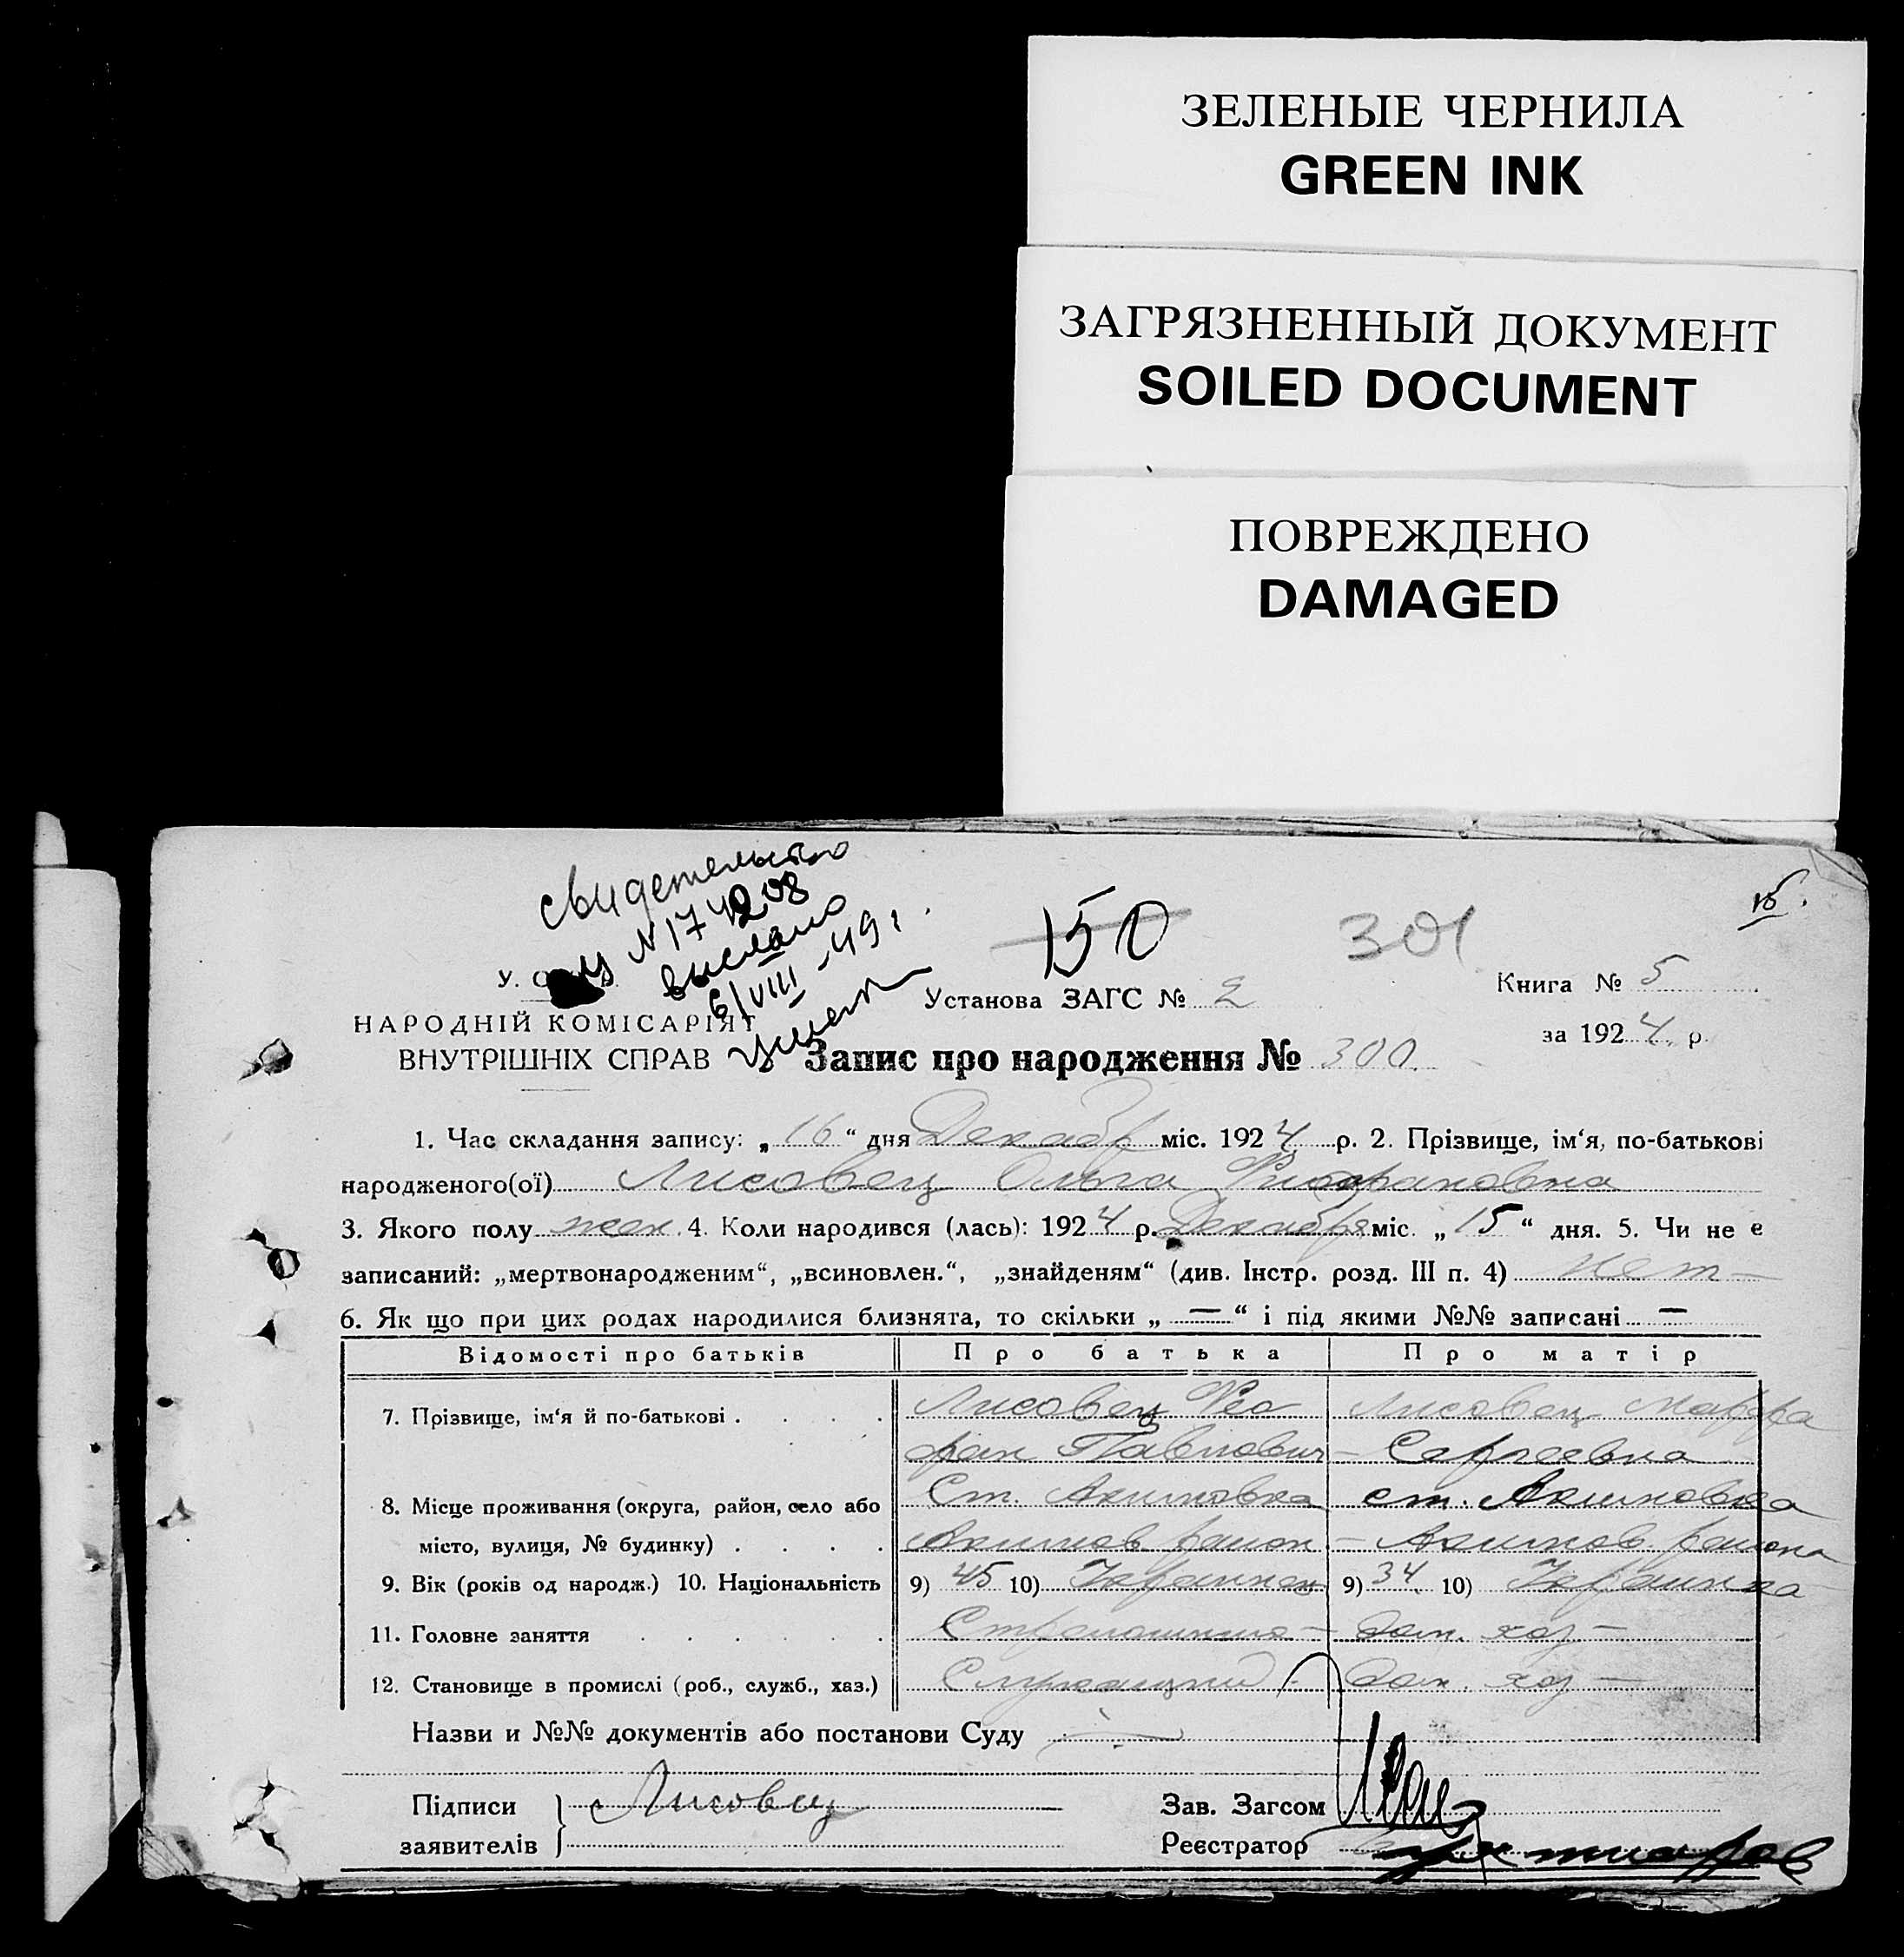 ЗЕЛЕНЫЕ ЧЕРНИЛА
GREEN INK
ЗАГРЯЗНЕННЫЙ ДОКУМЕНТ
SOILED DOCUMENT
ПОВРЕЖДЕНО
DAMAGED
15.
свидетельство
N 174208
выслано
6/VIII-49 г.
150
301
У.
Установа ЗАГС № 2
Книга № 5
НАРОДНІЙ КОМІСАРІЯТ
ВНУТРІШНІХ СПРАВ
за 1924 р.
Запис про народження № 300.
1. Час складання запису: „16“ дня Декабр міс. 1924 р. 2. Прізвище, ім‘я, по-батькові
народженого(ої) Лисовец Ольга
3. Якого полу жен. 4. Коли народився (лась): 1924 р. Декабря міс. „15“ дня. 5. Чи не є
записаний: „мертвонародженим“, „всиновлен.“, „знайденям“ (див. Інстр. розд. III п. 4) нет —
6. Як що при цих родах народилися близнята, то скільки „—“ і під якими №№ записані —
Відомості про батьків Про батька Про матір
7. Прізвище, ім‘я й по-батькові . . . . Лисовец Фео Лисовец Марфа
фан Павлович — Сергеевна
8. Місце проживання (округа, район, село або Ст. Акимовка ст. Акимовка
місто, вулиця, № будинку) . . . . Акимов. район — Акимов. района
9. Вік (років од народж.) 10. Національність 9) 45 10) Украинец 9) 34 10) Украинка
11. Головне заняття . . . . . . дом. хоз —
12. Становище в промислі (роб., служб., хаз.) Служащий. дом. хоз —
Назви и №№ документів або постанови Суду —
Підписи Лисовец Зав. Загсом
заявителів Реєстратор